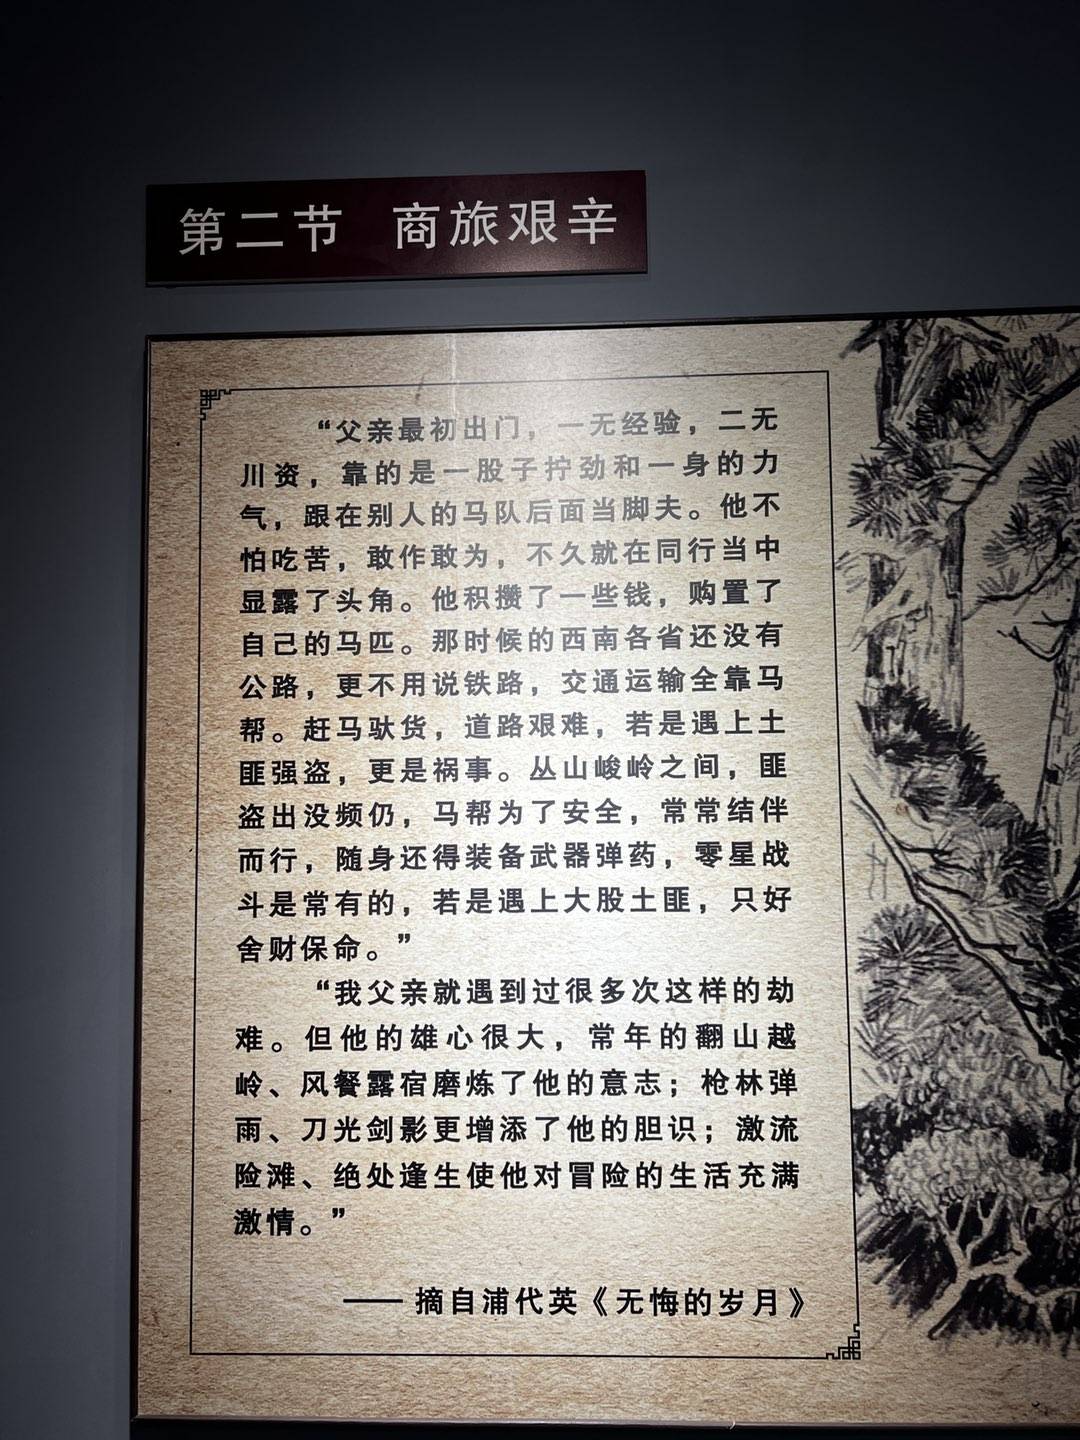 第二节 商旅艰辛
“父亲最初出门，一无经验，二无
川资，靠的是一股子拧劲和一身的力
气，跟在别人的马队后面当脚夫。他不
怕吃苦，敢作敢为，不久就在同行当中
显露了头角。他积攒了一些钱，购置了
自己的马匹。那时候的西南各省还没有
公路，更不用说铁路，交通运输全靠马
帮。赶马驮货，道路艰难，若是遇上土
匪强盗，更是祸事。丛山峻岭之间，匪
盗出没频仍，马帮为了安全，常常结伴
而行，随身还得装备武器弹药，零星战
斗是常有的，若是遇上大股土匪，只好
舍财保命。”
“我父亲就遇到过很多次这样的劫
难。但他的雄心很大，常年的翻山越
岭、风餐露宿磨炼了他的意志；枪林弹
雨、刀光剑影更增添了他的胆识；激流
险滩、绝处逢生使他对冒险的生活充满
激情。”
—— 摘自浦代英《无悔的岁月》